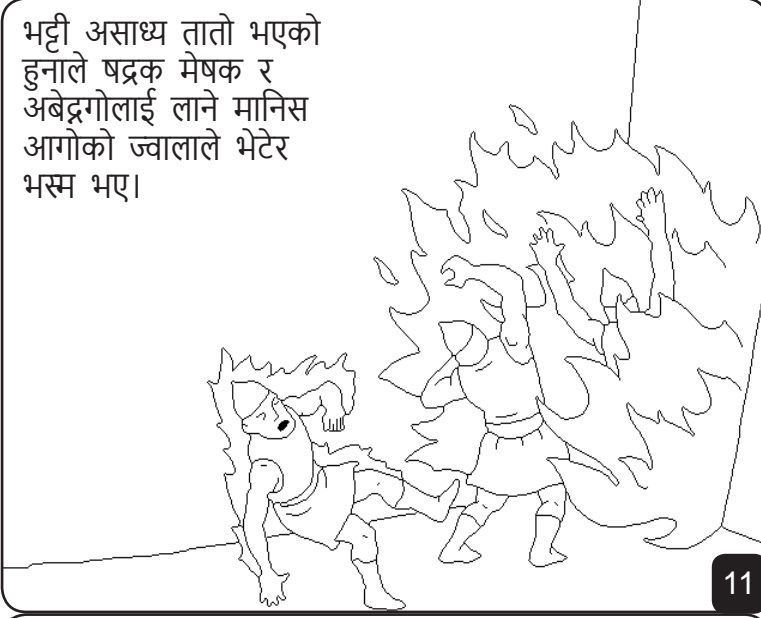 भट्टी असाध्य तातो भएको
हुनाले षद्रक मेषक र
अबेद्नगोलाई लाने मानिस
आगोको ज्वालाले भेटेर
भस्म भए।
11